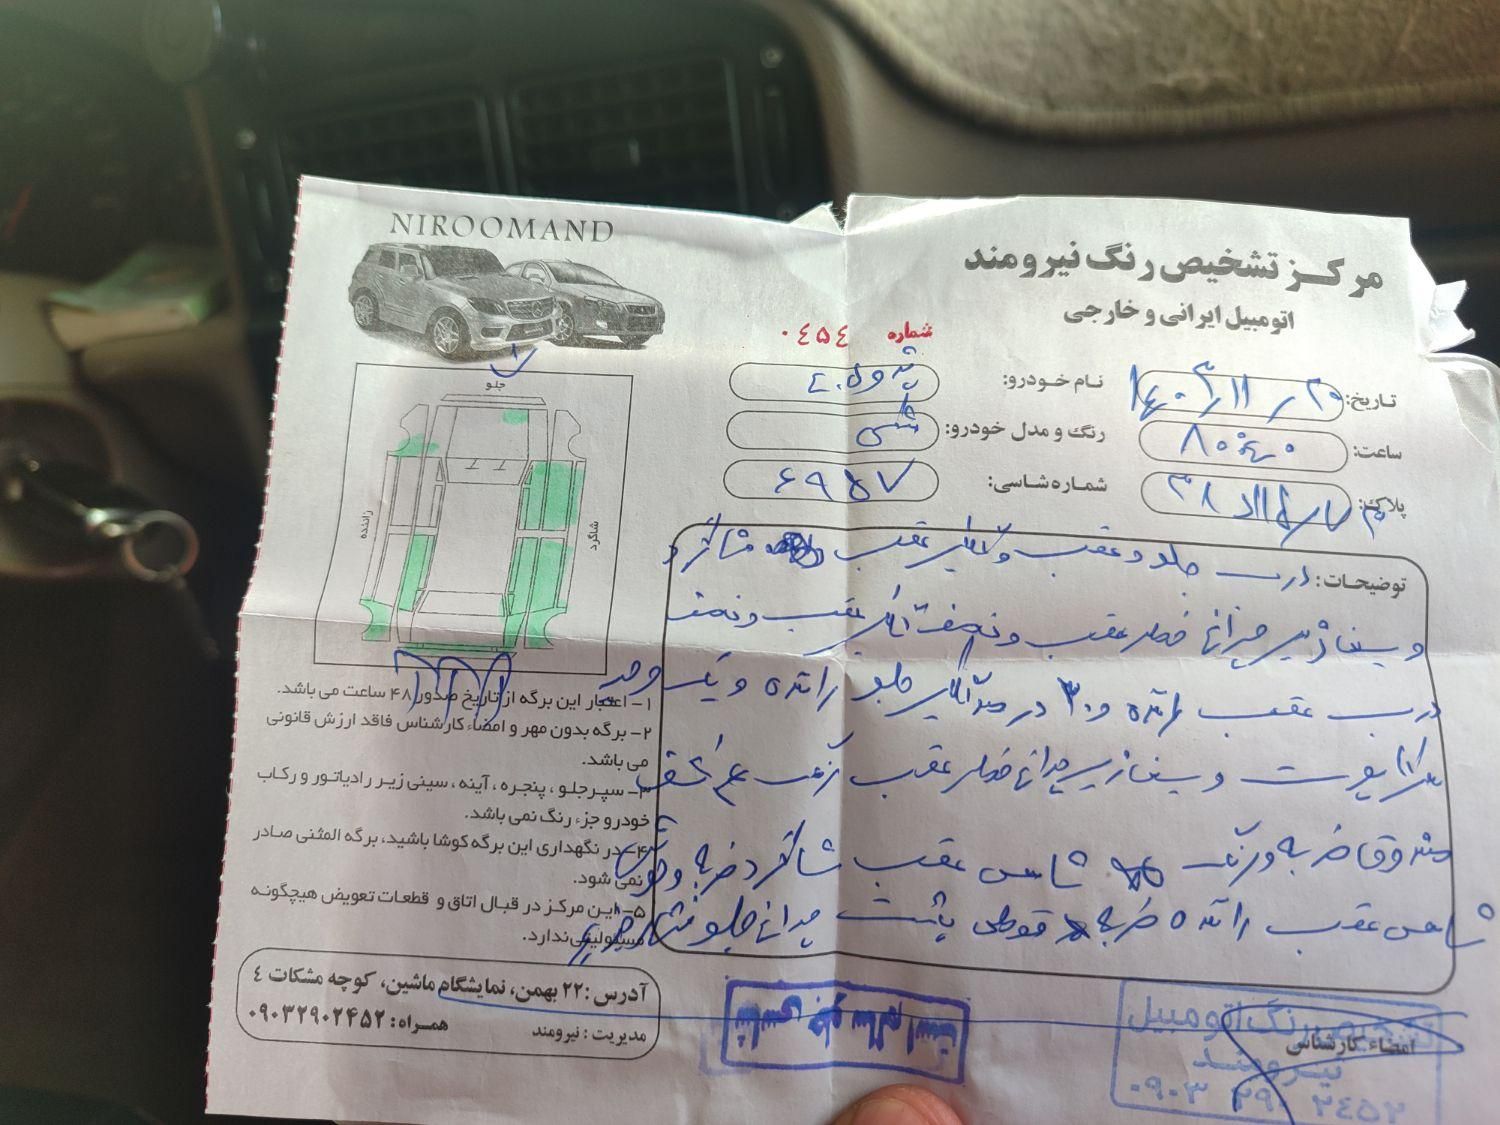 NIROOMAND
مرکز تشخیص رنگ نیرومند
اتومبیل ایرانی و خارجی
شماره ۰۴۵۴
تاریخ: ۱۴۰۳/۱۱/۲۰
نام خودرو: پژو ۴۰۵
ساعت:
رنگ و مدل خودرو:
پلاک:
شماره شاسی: ۶۹۵۷
جلو
راننده
شاگرد
توضیحات: درب جلو و عقب و گلگیر عقب شاگرد
و سینی زیر چراغ خطر عقب و نصف گلگیر عقب و نصف
درب عقب راننده و ۳۰ درصد گلگیر جلو راننده و یک
و سینی زیر چراغ خطر عقب رنگ کف
صندوق ضربه و رنگ شاسی عقب شاگرد ضربه و
شاسی عقب راننده ضربه قوطی پشت چراغ جلو شاگرد ضربه
۱- اعتبار این برگه از تاریخ صدور ۴۸ ساعت می باشد.
۲- برگه بدون مهر و امضاء کارشناس فاقد ارزش قانونی
می باشد.
۳- سپر جلو ، پنجره ، آینه ، سینی زیر رادیاتور و رکاب
خودرو جزء رنگ نمی باشد.
۴- در نگهداری این برگه کوشا باشید، برگه المثنی صادر
نمی شود.
۵- این مرکز در قبال اتاق و قطعات تعویض هیچگونه
مسئولیتی ندارد.
آدرس : ۲۲ بهمن، نمایشگاه ماشین، کوچه مشکات ۴
مدیریت : نیرومند همراه : ۰۹۰۳۲۹۰۲۴۵۲
شاسی جلو سالم است
امضاء کارشناس
تشخیص رنگ اتومبیل
نیرومند
۰۹۰۳ ۲۹۰ ۲۴۵۲